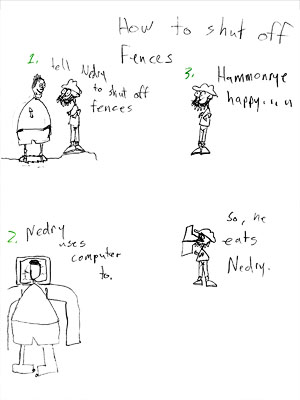 How to shut off
Fences
1. tell Nedry
to shut off
fences
2. Nedry
uses
computer
to.
3. Hammonrye
happy.. ..
So, he
eats
Nedry.